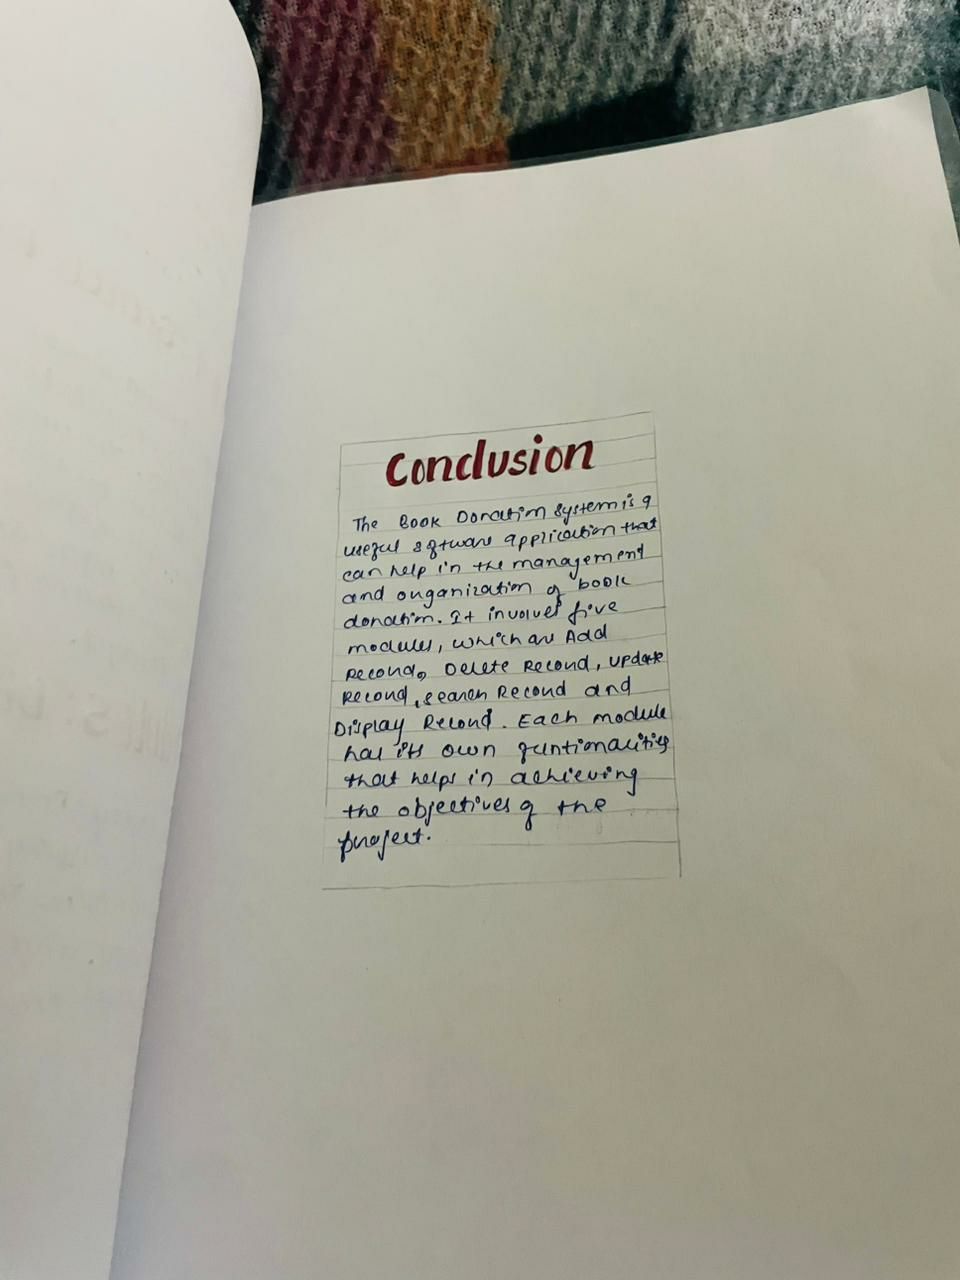 Conclusion
The Book Donation System is a
useful software application that
can help in the management
and organization of book
donation. It involves five
modules, which are Add
Record, Delete Record, Update
Record, Search Record and
Display Record. Each module
has its own funtionalities
that helps in achieving
the objectives of the
project.